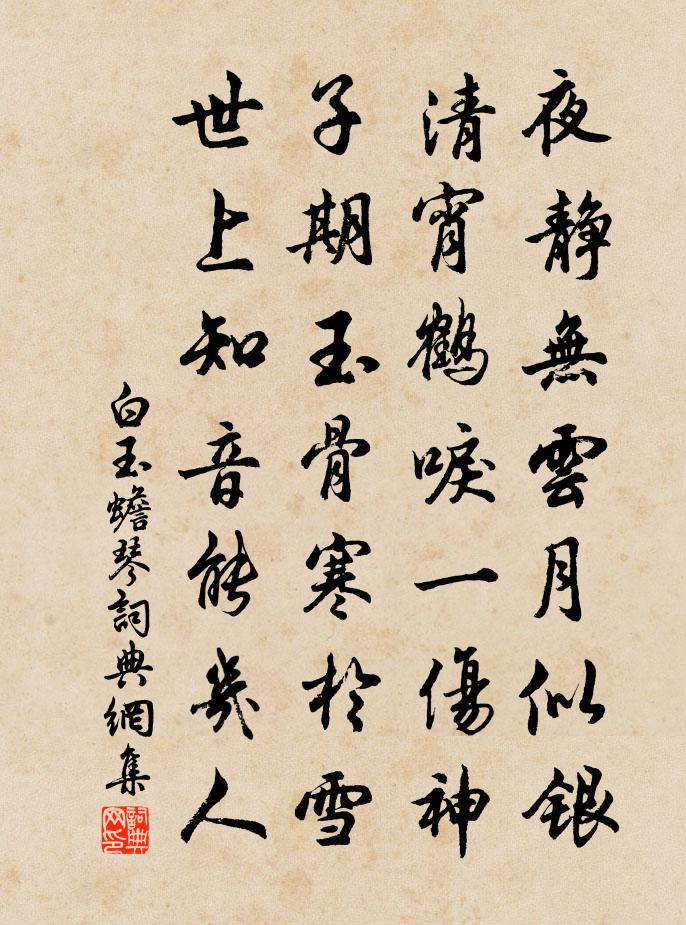 夜静無雲月似銀
清宵鶴唳一傷神
子期玉骨寒於雪
世上知音能幾人
白玉蟾琴詞典網集
詞典
网印